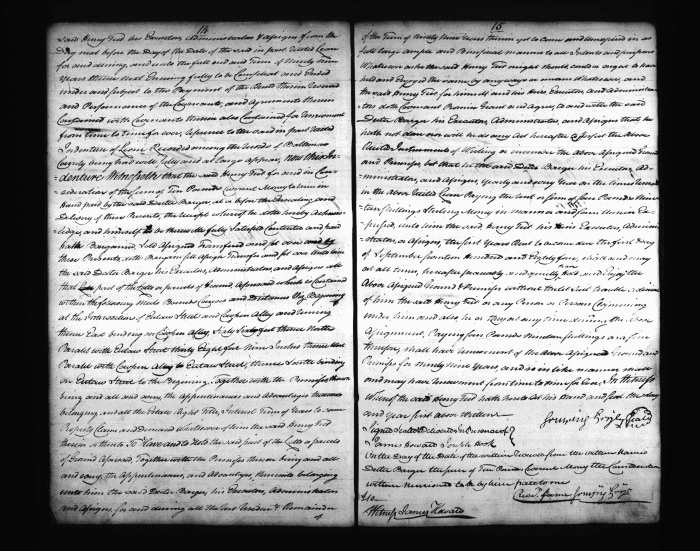 14
said Henry his Executors, Administrators & Assigns from the
Day next before the Day of the Date of the said in part recited Lease
for and during, and unto the full end and Term of Ninety nine
Years thence next Ensuing fully to be Compleat and Ended
under and subject to the Payment of the Rents therein
and Performance of the Covenants, and agreements therein
Contained with Covenants therein also Contained for renewment
from time to time for ever, reference to the said in part recited
Indenture of Lease Recorded among the Records of Baltimore
County being had will fully and at large appear, Now this In-
denture Witnesseth that the said Henry for and in Con-
sideration of the Sum of Ten Pounds Current Money to him in
Hand paid by the said Barger at or before the Sealing and
Delivery of these Presents, the receipt whereof he doth hereby Acknow-
ledge, and himself to be therewith fully Satisfied Contented and paid
hath Bargained Sold Assigned Transferred and set over and by
these Presents, doth Bargain sell Assign Transfer and set over unto him
the said Barger his Executors, Administrators, and Assigns all
that part of the Lotts or parcels of Ground, Aforesaid which is Contained
within the following Metes Bounds Courses and Distances Viz. Beginning
at the Intersection of Eutaw Street and Alley and running
thence East bounding on Alley Sixty feet thence North
Paralel with Eutaw Street thirty Eight feet Nine Inches thence West
Paralel with Alley to Eutaw Street, thence South bounding
on Eutaw Street to the Beginning. Together with the Premises thereon
being and all and every, the appurtenances and Advantages thereunto
belonging, and all the Estate Right Title, Interest Term of Years to come
Property Claim and Demand Whatsoever of him the said Henry
therein or thereto To Have and to Hold the said part of the Lotts or parcels
of Ground Aforesaid Together with the Premises thereon being and all
and every, the Appurtenances, and Advantages, thereunto belonging
unto him the said Barger, his Executors, Administrators
and Assigns, for and during all the Rest Residue & Remainder
15
of the Term of Ninety Nine Years therein yet to come and unexpired in as
full large ample and Beneficial manner to all Intents and purposes
Whatsoever as he the said Henry might should could or ought to have
held and Enjoyed the same by any ways or means Whatsoever, and
the said Henry for himself and his Heirs Executors, and Administra-
tors doth Covenant Promise Grant and agree, to and with the said
Barger his Executors, Administrators, and Assigns that he
hath not done nor will he do any Act hereafter to the Above
recited Instruments of Writing or encumber the Above Assigned Ground
and Premises but that he the said Barger his Executors, Ad-
ministrators, and Assigns, Yearly and every Year on the times
in the Above recited Lease Paying the rent or sum of four Pounds Nine-
teen Shillings Sterling Money in manner and form therein Ex-
pressed, unto him the said Henry his Heirs Executors, Admini-
strators, or Assigns, the first Years Rent to become due the first Day
of September Seventeen Hundred and Eighty four, shall and may
at all times, hereafter peaceably and quietly, Hold and Enjoy the
Above Assigned Ground & Premises without the let suit trouble or denial
of him the said Henry or any Person or Persons Claiming
under him and also he or they at any time during the Above
Assignment, Paying four Pounds Nineteen Shillings and six
therefor, shall have renewment of the Above Assigned Ground and
Premises for Ninety Nine Years, and so in like manner shall
and may have renewment from time to time for ever. In Witness
Whereof the said Henry hath hereto set his Hand and Seal the day
and Year first above Written
Signed Sealed & Delivered in Presence of
James Howard Joseph Hook
On the Day of the Date of the within received from the within Named
Barger the Sum of Ten Pounds Current Money the Consideration
within Mentioned to be by him paid to me
£10
Witness James Howard